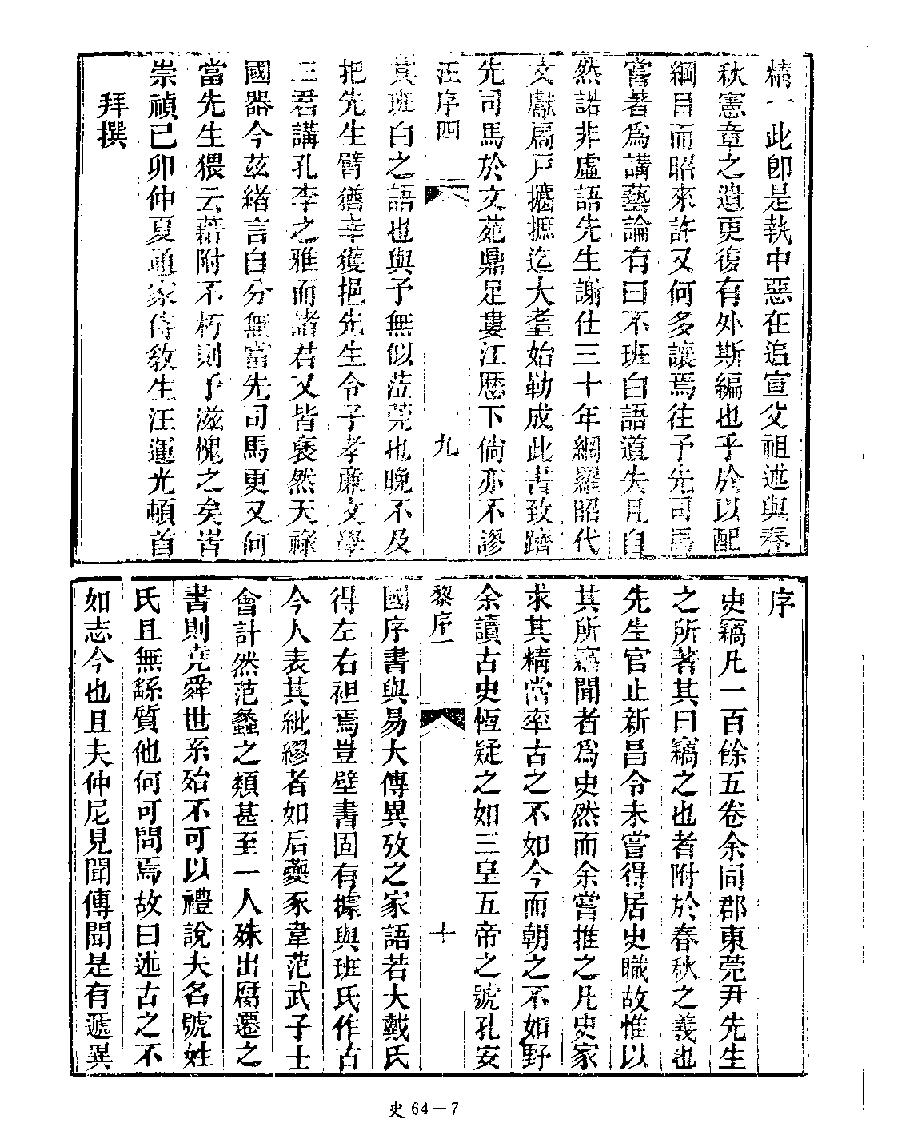 精一此卽是執中惡在追宣父祖述與春
秋憲章之遺更復有外斯編也乎於以配
綱目而昭來許又何多讓焉往予先司馬
嘗著爲講藝論有曰不班白語道失凡自
然諾非虛語先生謝仕三十年網羅昭代
文獻扃戸攟摭迄大耋始勒成此書致躋
先司馬於文苑鼎足婁江歷下倘亦不謬
汪序四 九
班白之語也與予無似涖莞也晚不及
把先生臂猶幸獲挹先生令子孝廉文學
三君講孔李之雅而諸君又皆褎然天祿
國器今茲緒言自分無當先司馬更又何
當先生猥云藉附不朽則予滋愧之矣旹
崇禎己卯仲夏通家侍敎生汪運光頓首
拜撰
序
史竊凡一百餘五卷余同郡東莞尹先生
之所著其曰竊之也者附於春秋之義也
先生官止新昌令未嘗得居史職故惟以
其所竊聞者爲史然而余嘗推之凡史家
求其精當率古之不如今而朝之不如野
余讀古史恆疑之如三皇五帝之號孔安
黎序一 十
國序書與易大傳異攷之家語若大戴氏
得左右袒焉豈壁書固有據與班氏作古
今人表其紕繆者如后夔豕韋范武子士
會計然范蠡之類甚至一人殊出腐遷之
書則堯舜世系殆不可以禮說大名號姓
氏且無繇質他何可問焉故曰述古之不
如志今也且夫仲尼見聞傳聞是有遞異
史 64－7